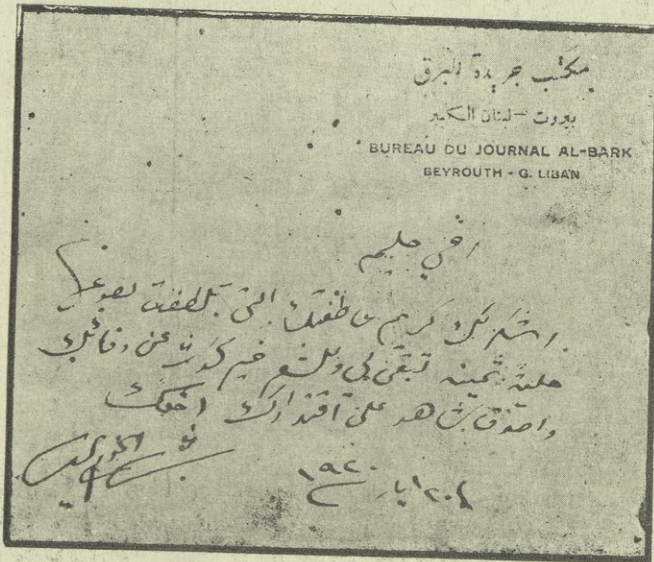 مكتب جريدة البرق
بيروت - لبنان الكبير
BUREAU DU JOURNAL AL-BARK
BEYROUTH - G. LIBAN
اخي حليم
اشكر لك كريم عاطفتك التي تلطفت بصوغها
حلية ثمينة تبقى لي وللشعر خير عن وفائك
واصدق شاهد على اقتدارك اخوك
بشاره الخوري
٢٠ ايار ١٩٢٠